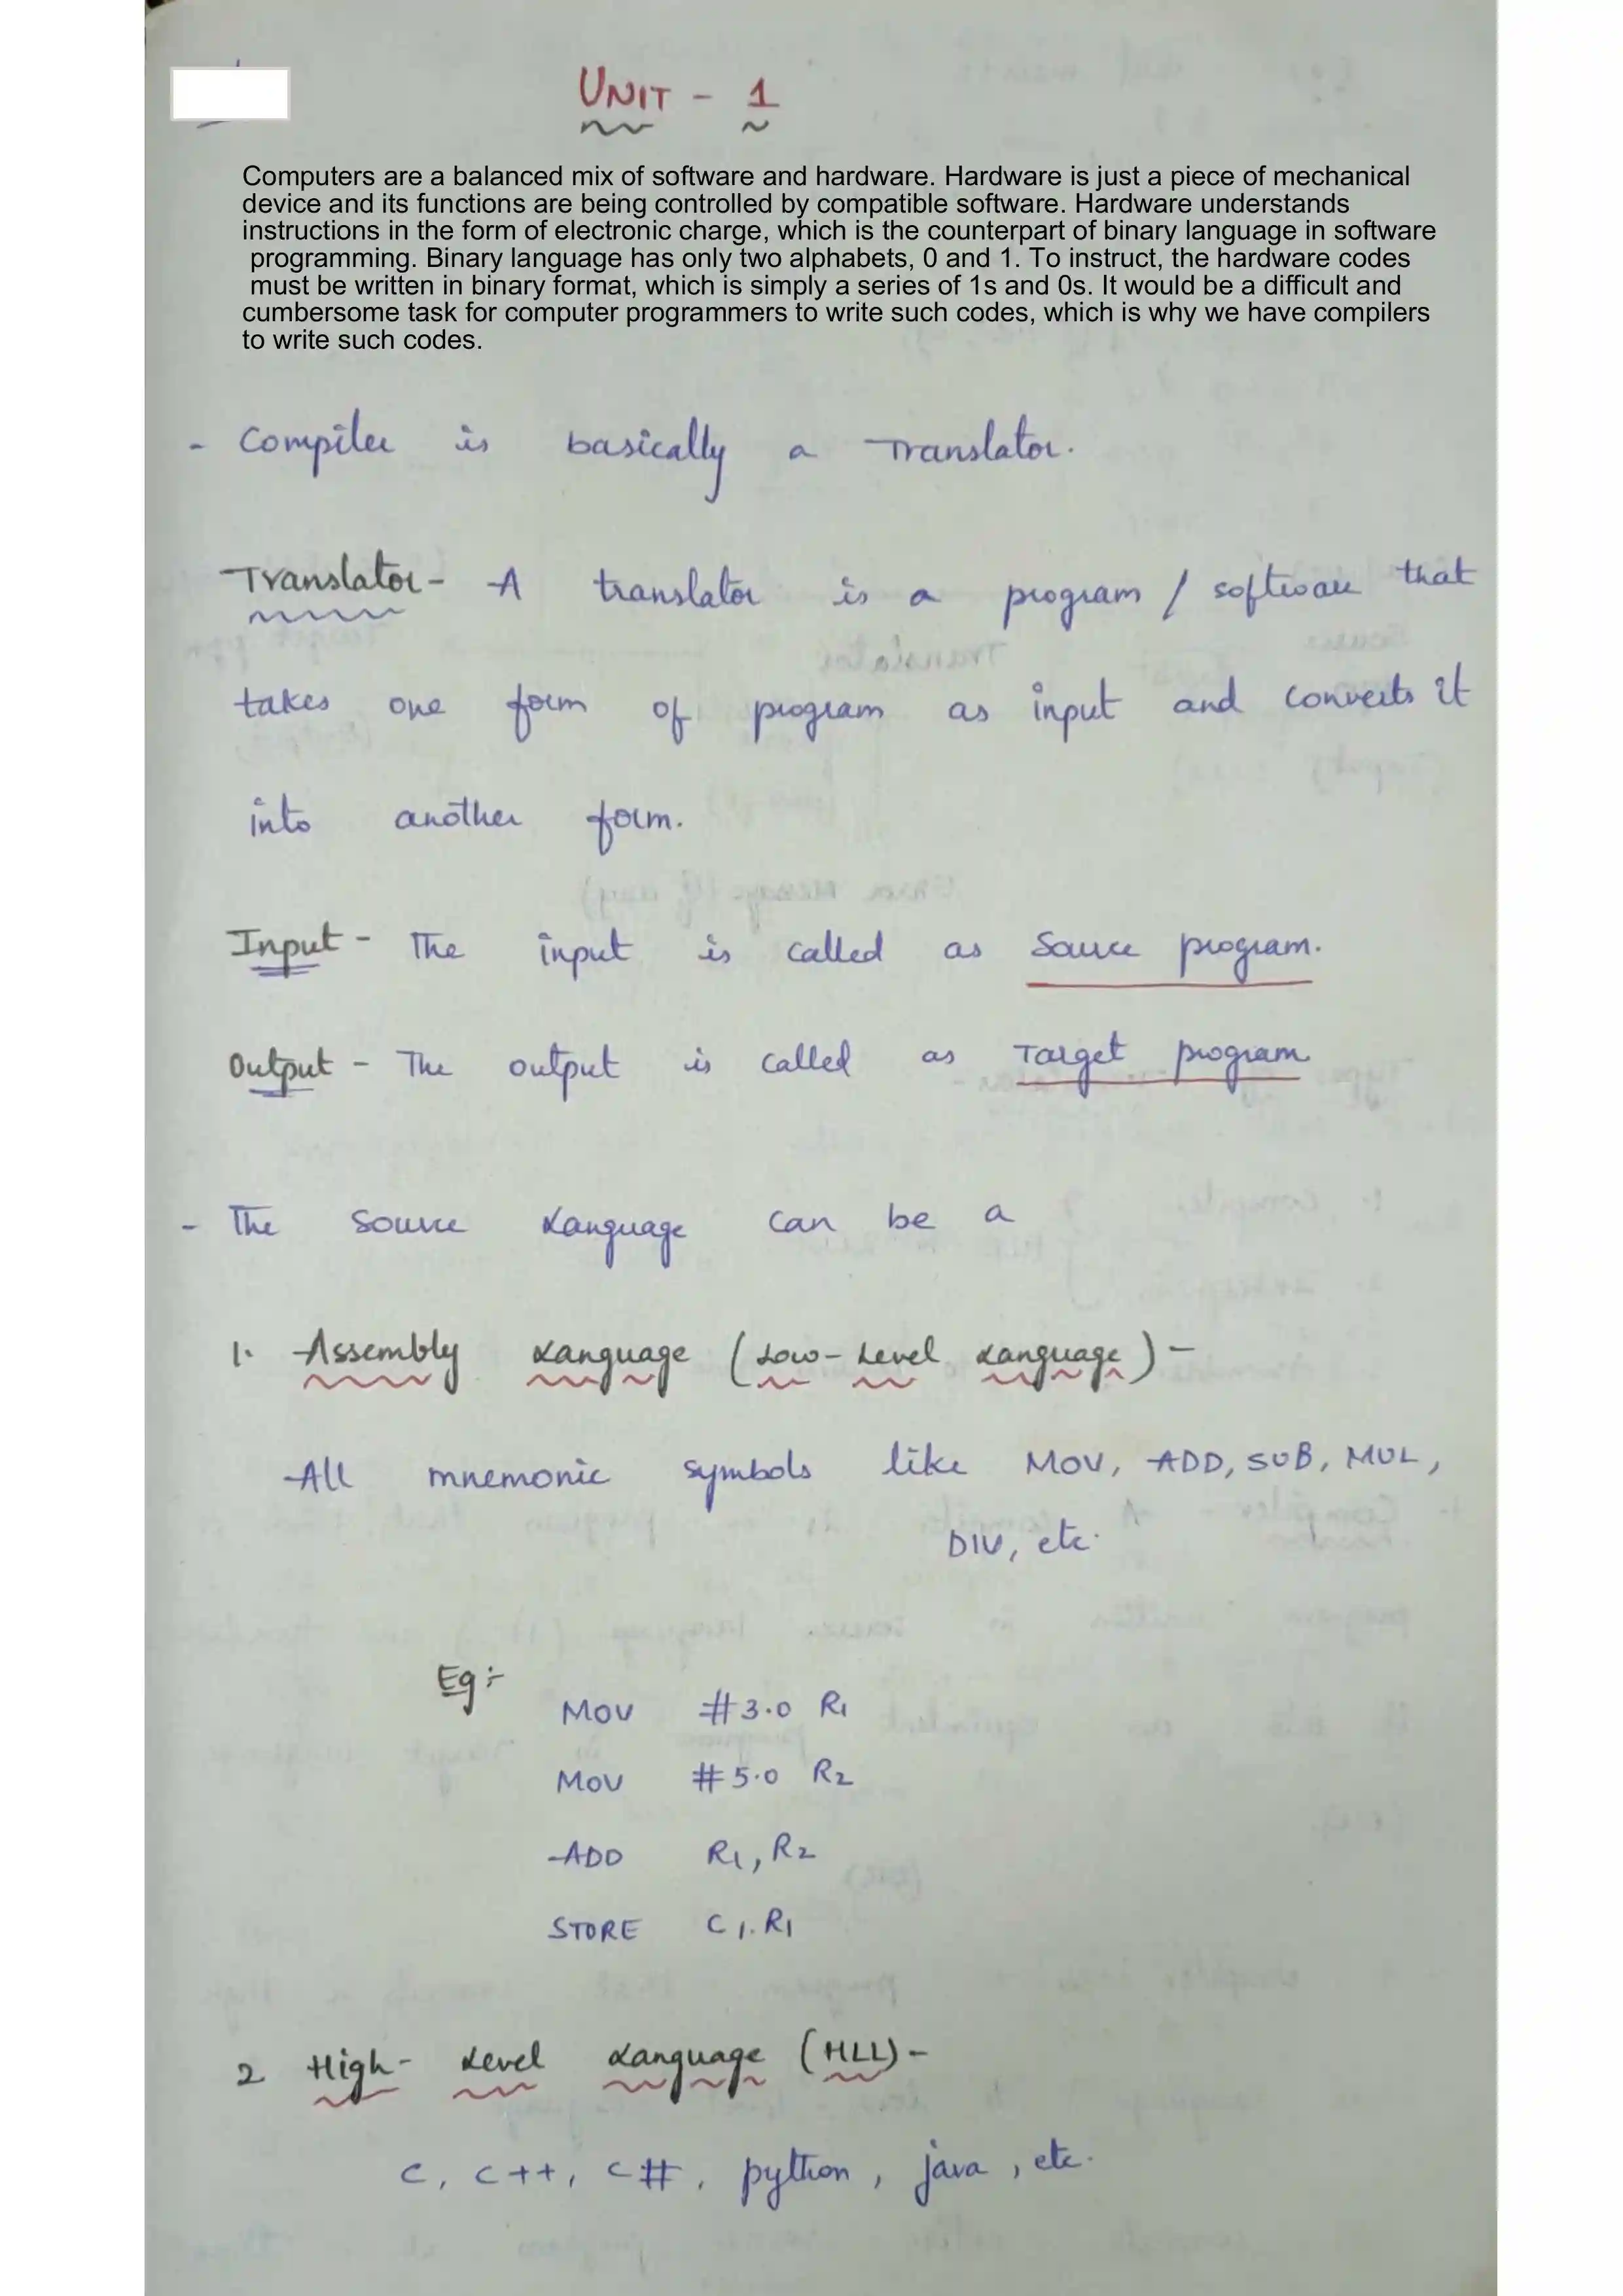 UNIT - 1
Computers are a balanced mix of software and hardware. Hardware is just a piece of mechanical
device and its functions are being controlled by compatible software. Hardware understands
instructions in the form of electronic charge, which is the counterpart of binary language in software
programming. Binary language has only two alphabets, 0 and 1. To instruct, the hardware codes
must be written in binary format, which is simply a series of 1s and 0s. It would be a difficult and
cumbersome task for computer programmers to write such codes, which is why we have compilers
to write such codes.
- Compiler is basically a Translator.
Translator - A translator is a program / software that
takes one form of program as input and converts it
into another form.
Input - The input is called as Source program.
Output - The output is called as Target program
- The source Language can be a
1. Assembly Language (Low-Level Language) -
All mnemonic symbols like MOV, ADD, SUB, MUL,
DIV, etc.
Eg :-
MOV #3.0 R1
MOV #5.0 R2
ADD R1, R2
STORE C1. R1
2 High-Level Language (HLL) -
C, C++, C#, python, java, etc.